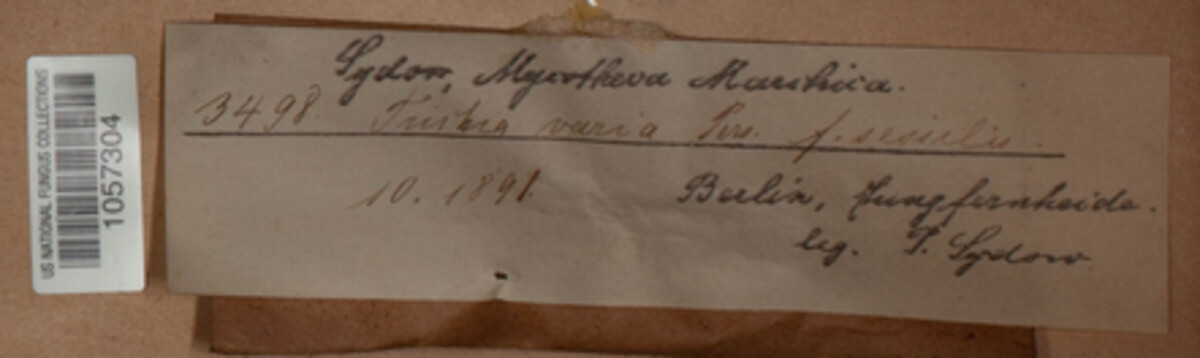 US NATIONAL FUNGUS COLLECTIONS
1057304
Sydow, Mycotheca Marchica.
3498. Trichia varia Pers. f. sessilis.
10. 1891. Berlin, Jungfernheide.
leg. P. Sydow.